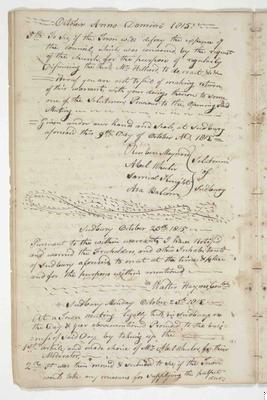 October Anno Domini 1815
5th To See if the Town will defray the expense of
the Council, which was convened by the request
of the Church, for the purpose of regularly
dismissing the Revd Mr Hilliard, to do or act
Hereof you are not to fail of making return
of this Warrant with your doings thereon to some
one of the Selectmen Previous to the Opening said
Meeting
Given under our hand and Seal, at Sudbury
aforesaid this 9th Day of October AD, 1815
Reuben Maynard
Abel Wheeler
Samuel Knight
Asa
Selectmen
of
Sudbury
Sudbury October 23th 1815
Pursuant to the within warrant I have Notified
and warned the Freeholders, and other Inhabitants
of Sudbury aforesaid to meet at the time & place
and for the purposes within mentioned
Walter Haynes
Sudbury Monday October 23th 1815
At a Town meeting legally held in Sudbury on
the Day & year abovementioned Pursuant to the busi-
ness of said Day by taking up the
1st article, and made choice of Mr Abel Wheeler for their
Moderator
2nd it was then moved & Seconded to see if the Town
would take any measures for supplying the pulpit